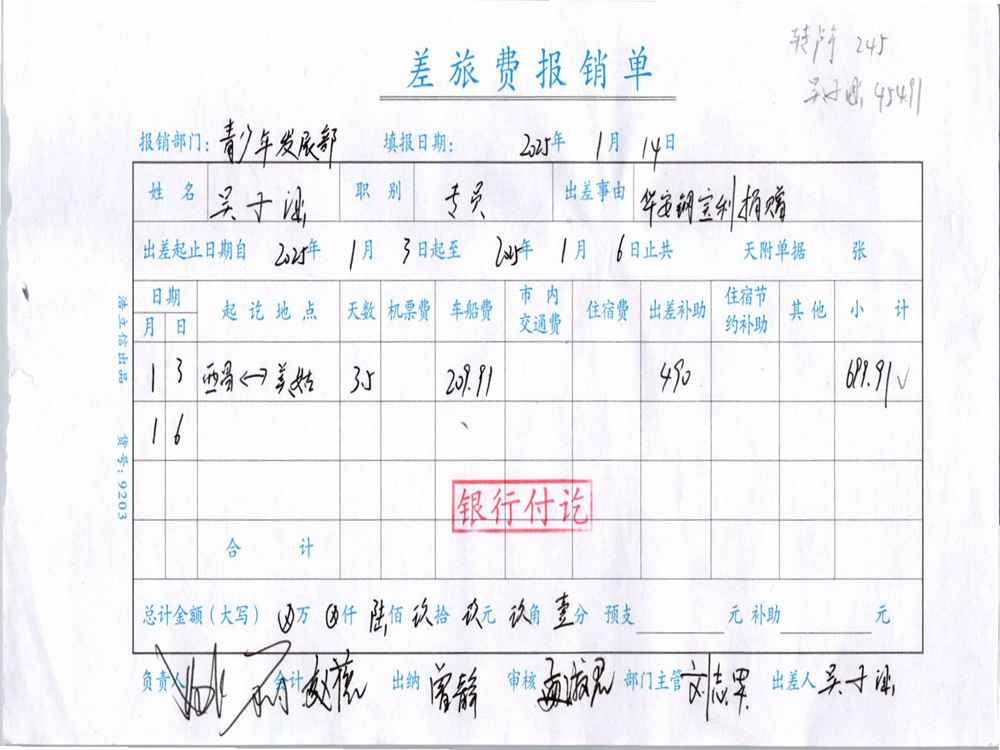 差旅费报销单
245
吴子涵 454.91
报销部门: 青少年发展部 填报日期: 2025年 1月 14日
姓名 吴子涵 职别 专员 出差事由 捐赠
出差起止日期自 2025年 1月 3日起至 2025年 1月 6日止共 天附单据 张
日期 起讫地点 天数 机票费 车船费 市内交通费 住宿费 出差补助 住宿节约补助 其他 小计
月 日
1 3 西昌↔美姑 3.5 209.91 490 699.91 ✓
1 6
银行付讫
合计
总计金额(大写) ⊗万 ⊗仟 陆佰 玖拾 玖元 玖角 壹分 预支 元 补助 元
负责人 会计 出纳 曾静 审核 部门主管 刘志军 出差人 吴子涵
货号:9203